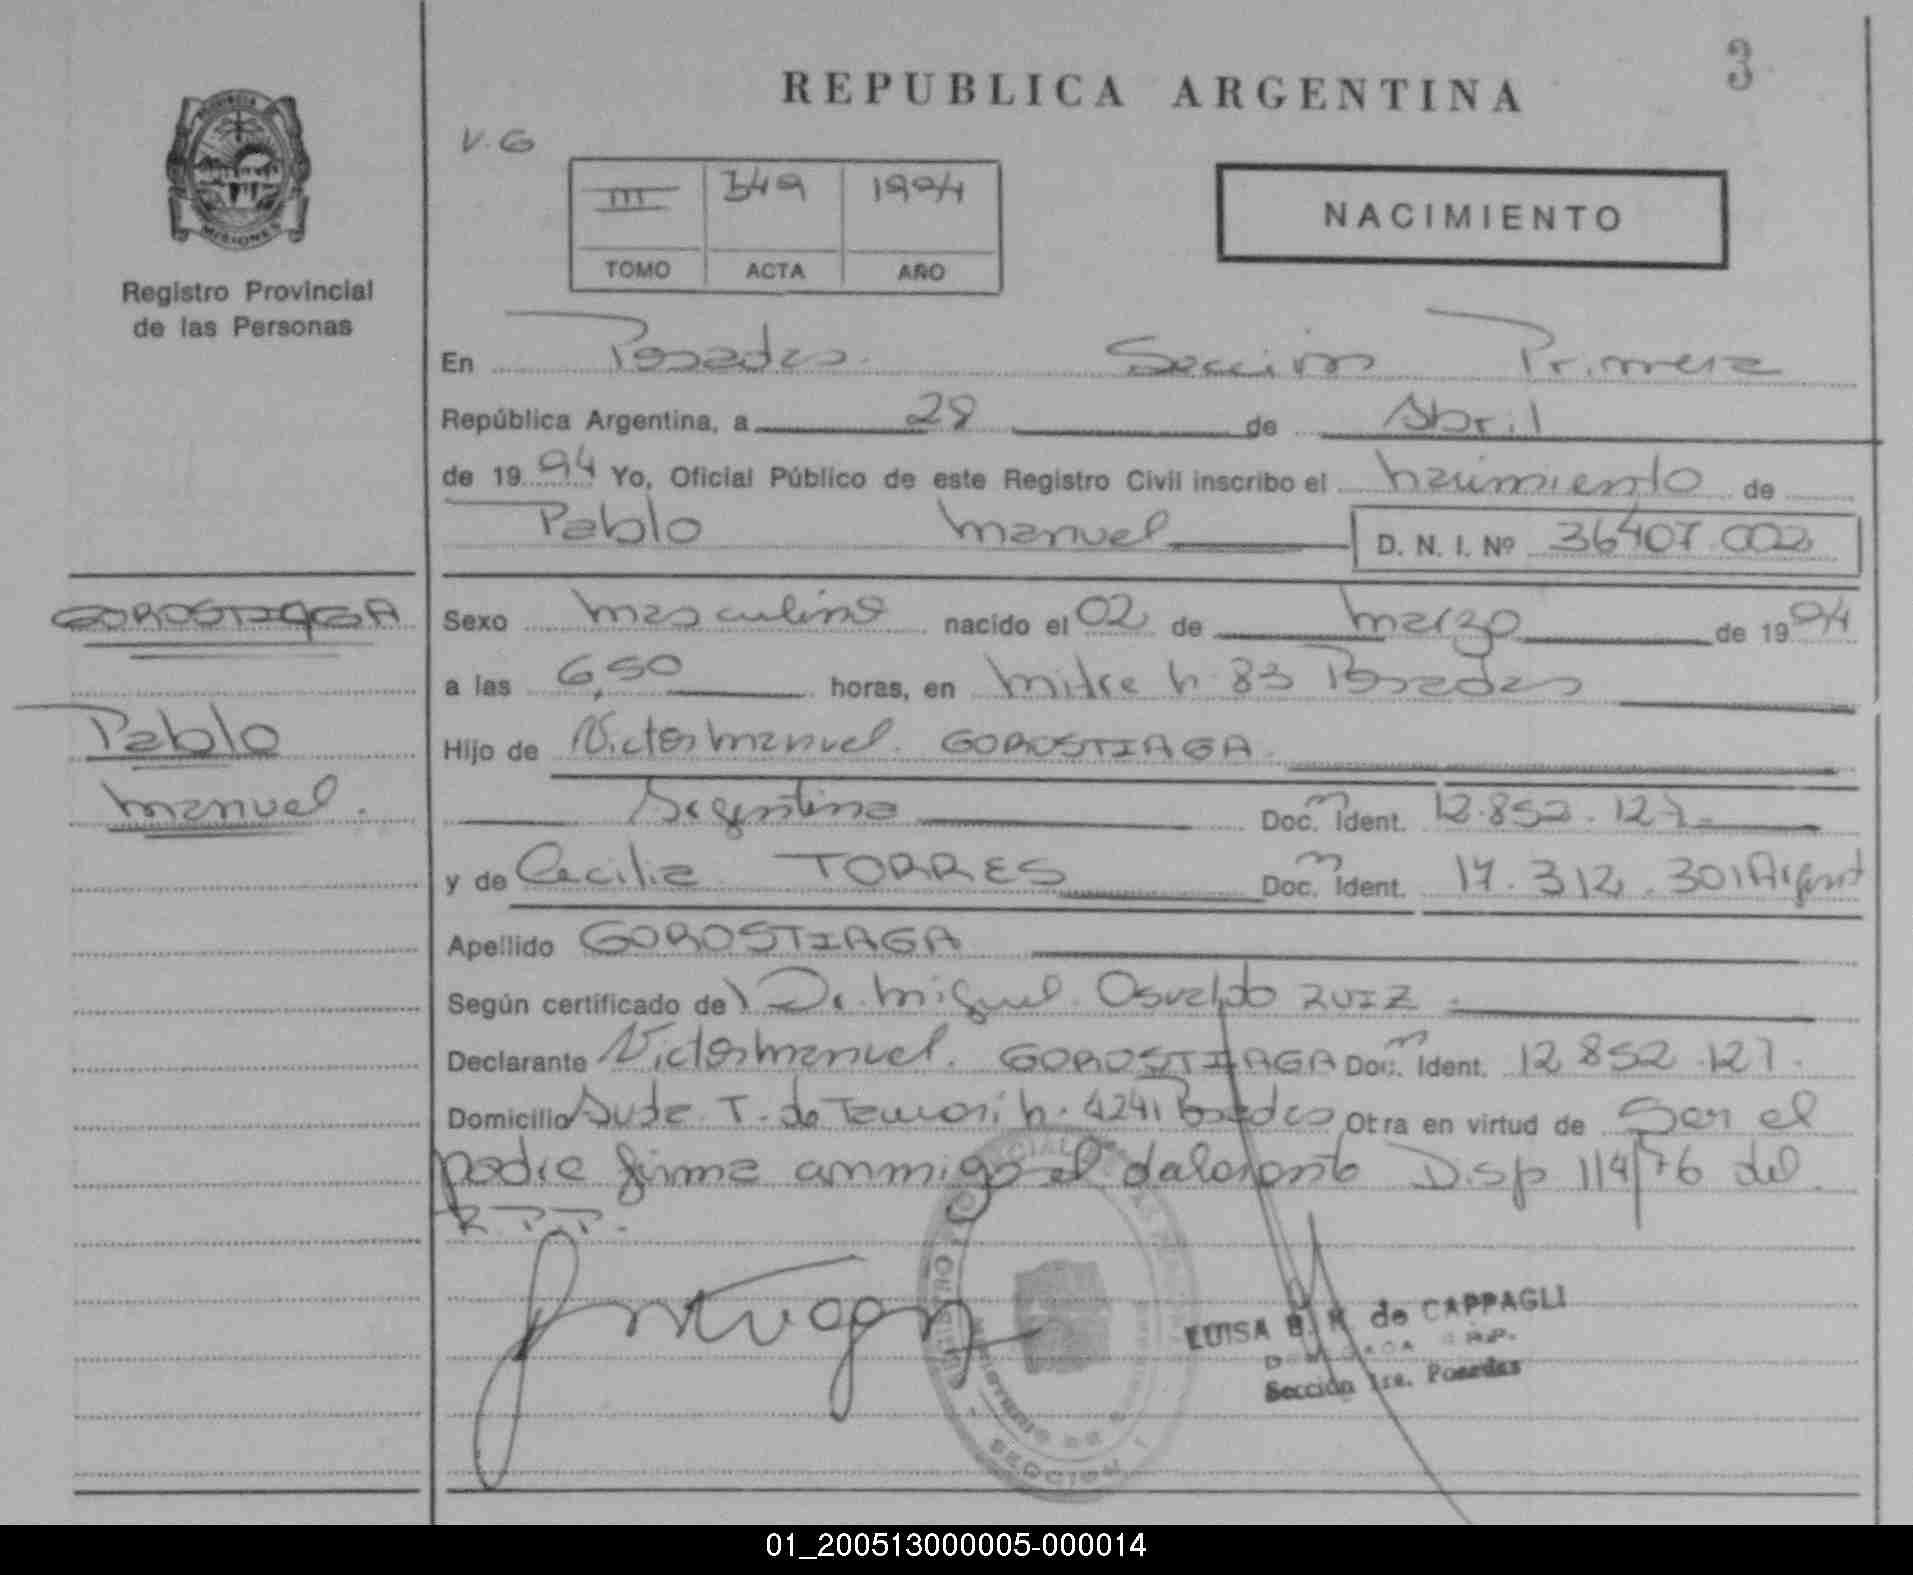 3
REPUBLICA ARGENTINA
V.G
III 349 1994
TOMO ACTA AÑO
NACIMIENTO
PROVINCIA
MISIONES
Registro Provincial
de las Personas
En Posadas Sección Primera
República Argentina, a 28 de Abril
de 1994 Yo, Oficial Público de este Registro Civil inscribo el nacimiento de
Pablo Manuel D. N. I. Nº 36407.002
GOROSTIAGA
Pablo
Manuel.
Sexo masculino nacido el 02 de marzo de 1994
a las 6,50 horas, en Mitre n. 83 Posadas
Hijo de Victor Manuel. GOROSTIAGA
Argentina Doc. m Ident. 12.852.127
y de Cecilia TORRES Doc. m Ident. 17.312.301 Argent
Apellido GOROSTIAGA
Según certificado de Dr. Miguel Osvaldo RUIZ
Declarante Victor Manuel. GOROSTIAGA Doc. m Ident. 12852.127.
Domicilio T. de n. 4241 Posadas Otra en virtud de Ser el
padre firma conmigo el Disp 114/76 del
R.P.P.
LUISA B. de CAPPAGLI
R.P.
Sección 1ra. Posadas
MINISTERIO DE
SECCION 1
01_200513000005-000014